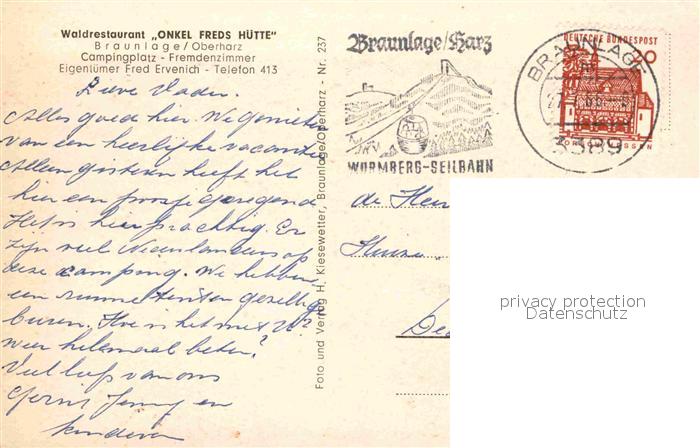 Waldrestaurant „ONKEL FREDS HÜTTE"
Braunlage/Oberharz
Campingplatz - Fremdenzimmer
Eigentümer Fred Ervenich - Telefon 413
Lieve Vader.
Alles goed hier. We genieten
van een heerlijke vacantie
Alleen gisteren heeft het
hier een poosje geregend
Het is hier prachtig. Er
zijn veel Nederlanders op
deze camping. We hebben
een gezellig
buren. Hoe is het met U?
weer helemaal beter?
Veel liefs van ons
Gerrit Jenny en
kinderen
Foto und Verlag H. Kiesewetter, Braunlage/Oberharz - Nr. 237
Braunlage/Harz
WURMBERG-SEILBAHN
BRAUNLAGE
3389
DEUTSCHE BUNDESPOST
20
de Heer
privacy protection
Datenschutz